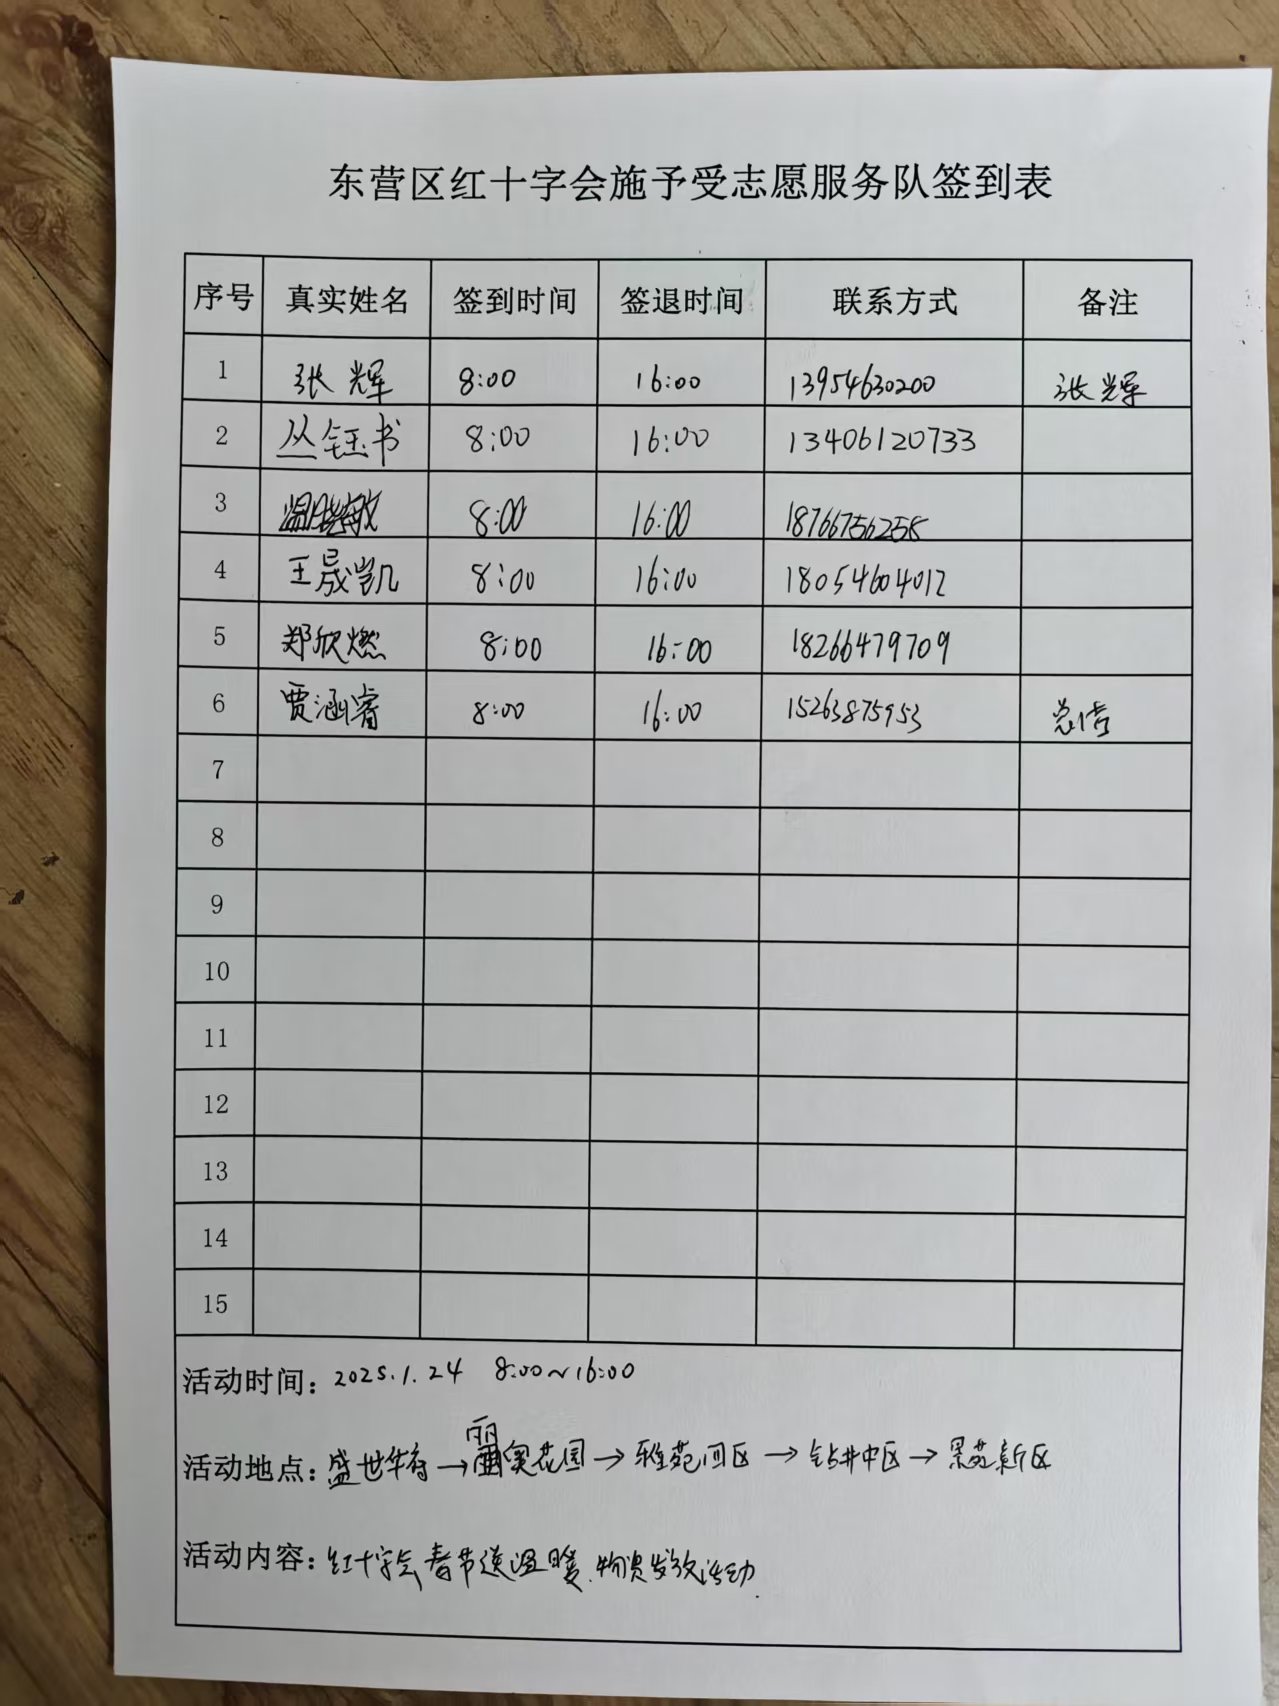 东营区红十字会施予受志愿服务队签到表
序号 真实姓名 签到时间 签退时间 联系方式 备注
1 张辉 8:00 16:00 13954630200 张辉
2 丛钰书 8:00 16:00 13406120733
3 8:00 16:00 18766756258
4 王晟凯 8:00 16:00 18054604012
5 郑欣燃 8:00 16:00 18266479709
6 贾涵睿 8:00 16:00 15263875953
7
8
9
10
11
12
13
14
15
活动时间：2025.1.24 8:00~16:00
活动地点：盛世华府→丽奥花园→雅苑四区→钻井中区→景苑新区
活动内容：红十字会春节送温暖.物资发放活动.